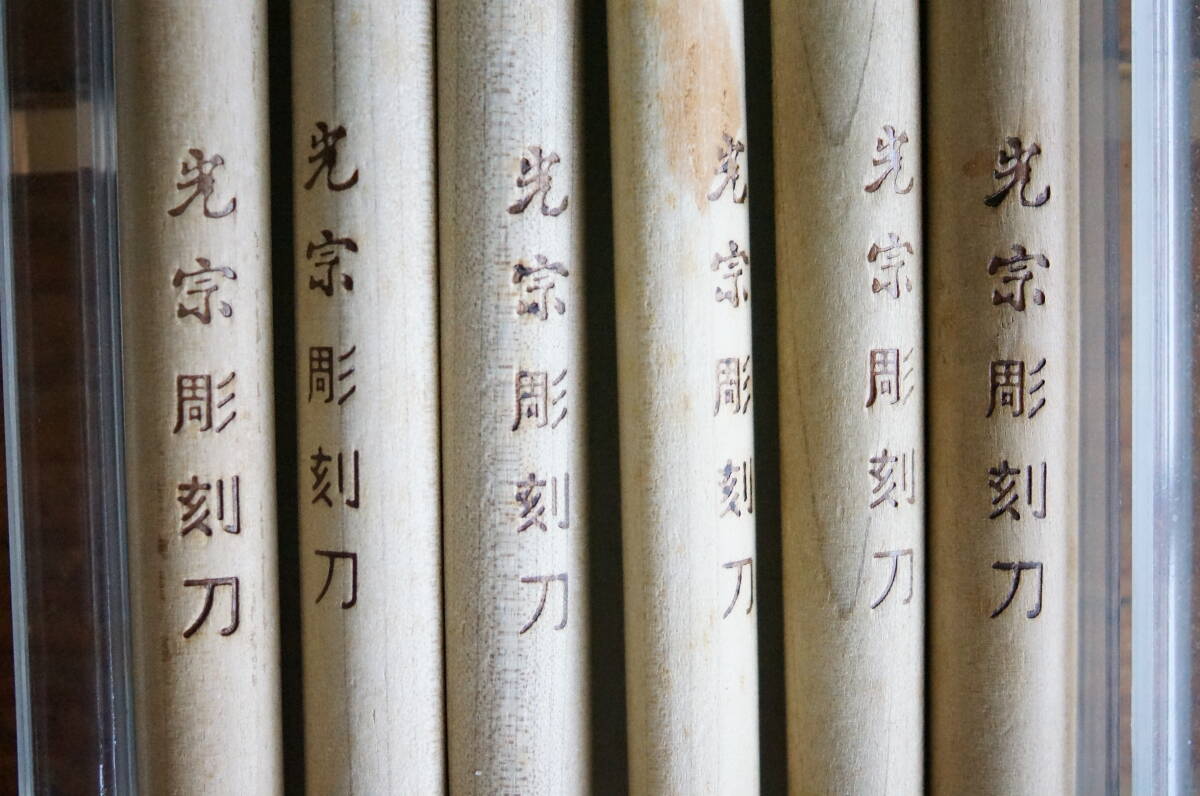 光宗彫刻刀
光宗彫刻刀
光宗彫刻刀
光宗彫刻刀
光宗彫刻刀
光宗彫刻刀